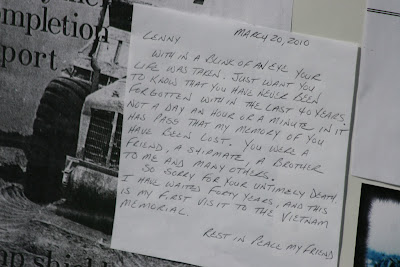 ompletion
port
MARCH 20, 2010
LENNY
WITH IN A BLINK OF AN EYE YOUR
LIFE WAS TAKEN. JUST WANT YOU
TO KNOW THAT YOU HAVE NEVER BEEN
FORGOTTEN WITH IN THE LAST 40 YEARS,
NOT A DAY AN HOUR OR A MINUTE IN IT
HAS PASS THAT MY MEMORY OF YOU
HAVE BEEN LOST. YOU WERE A
FRIEND, A SHIPMATE, A BROTHER
TO ME AND MANY OTHERS.
SO SORRY FOR YOUR UNTIMELY DEATH.
I HAVE WAITED FORTY YEARS, AND THIS
IS MY FIRST VISIT TO THE VIETNAM
MEMORIAL.
REST IN PEACE MY FRIEND